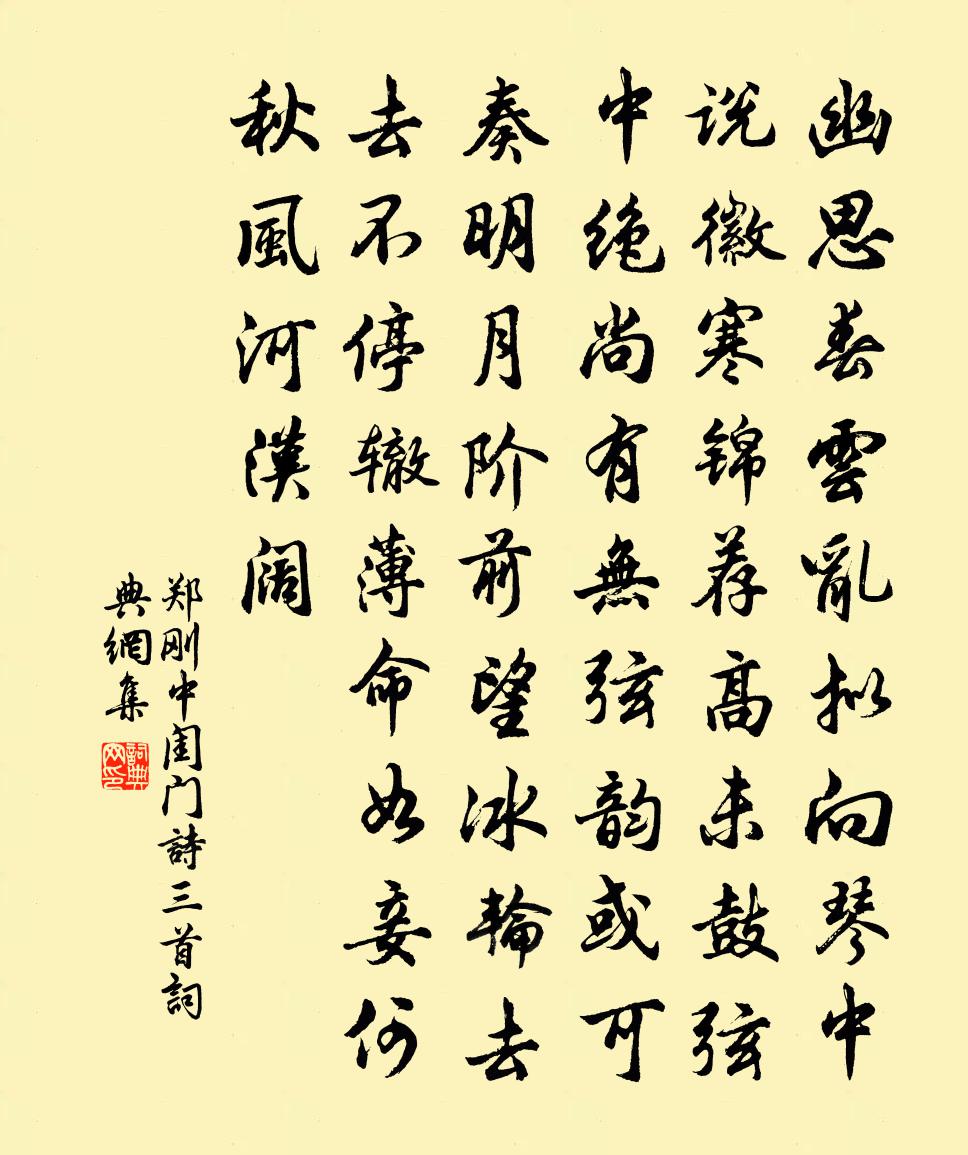 幽思春雲亂拟向琴中
说徽寒锦荐高未鼓弦
中绝尚有無弦韵或可
奏明月阶前望冰輪去
去不停辙薄命如妾何
秋風河漢阔
郑刚中闺门詩三首詞
典網集
詞典网印